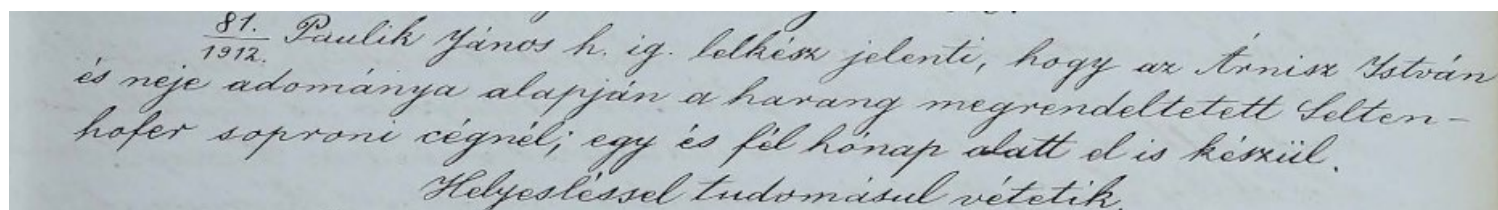 81./1912. Paulik János h. ig. lelkész jelenti, hogy az Árnisz István
és neje adománya alapján a harang megrendeltetett Selten-
hofer soproni cégnél; egy és fél hónap alatt el is készül.
Helyesléssel tudomásul vétetik.